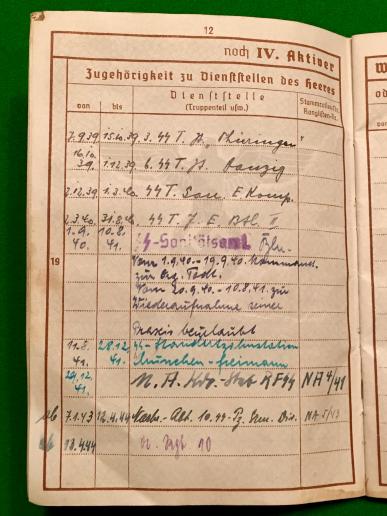 12
noch IV. Aktiver
Zugehörigkeit zu Dienststellen des Heeres
von bis Dienststelle
(Truppenteil usw.)
Stammrollen-Nr.
Ranglisten-Nr.
7.9.39 15.10.39 3. SS T. St. „Thüringen"
16.10.39. 1.12.39 6. SS T. St. Danzig
2.12.39 1.3.40 SS T. San. E. Komp.
2.3.40 31.8.40 SS T. J. E. Btl. II
1.9.40. 10.8.41. SS-Sanitätsamt Bln.
19
Vom 1.9.40.-19.9.40 kommand.
zur Org. Todt.
Vom 20.9.40.-10.8.41. zur
Wiederaufnahme seiner
Praxis beurlaubt
11.8.41. 28.12.41. SS-Standortzahnstation
München-Freimann
29.12.41. K.-Stab RFSS NA 4/41
ab 7.1.43 12.4.44 Nachr.-Abt. 10. SS-Pz. Gren. Div. NA 5/43
ab 13.4.44 10